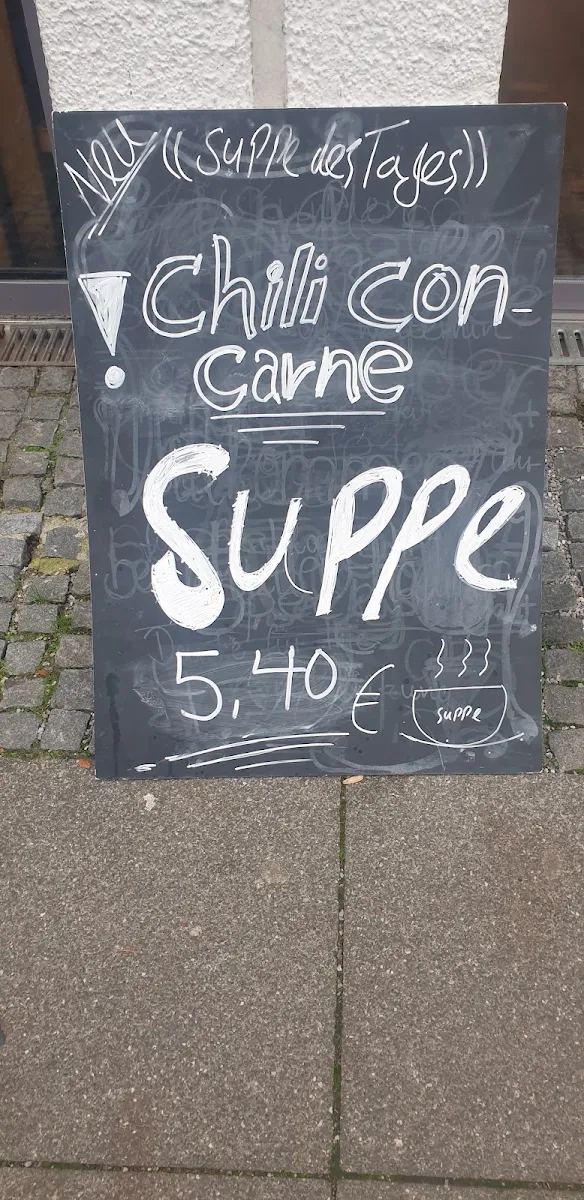 Neu ((Suppe des Tages))
! Chili con-
carne
Suppe
5,40 €
suppe